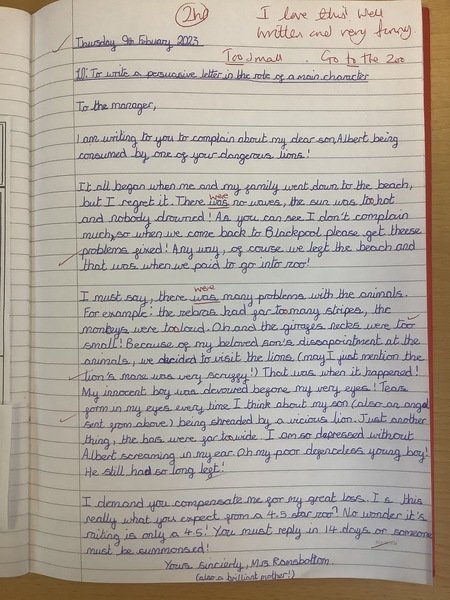 2nd
I love this! Well
written and very funny.
Thursday 9th Febuary 2023
Too small. Go to the zoo
LO: To write a persuasive letter in the role of a main character
To the manager,
I am writing to you to complain about my dear son, Albert being
consumed by one of your dangerous lions!
It all began when me and my family went down to the beach,
were
but I regret it. There was no waves, the sun was too hot
and nobody drowned! As you can see I don't complain
much, so when we come back to Blackpool please get theese
problems fixed! Any way, of course we left the beach and
that was when we paid to go into zoo!
were
I must say, there was many problems with the animals.
For example: the zebras had far too many stripes, the
monkeys were too loud. Oh and the girafes necks were too
small! Because of my beloved son's dissapointment at the
animals, we decided to visit the lions, (may I just mention the
lion's mane was very scruffy!) That was when it happened!
My innocent boy was devoured before my very eyes! Tears
form in my eyes every time I think about my son (also an angel
sent from above) being shreaded by a vicious lion. Just another
thing, the bars were far too wide. I am so depressed without
Albert screaming in my ear. Oh my poor defenceless young boy!
He still had so long left!
I demand you compensate me for my great loss. Is this
really what you expect from a 4.5 star zoo? No wonder it's
raiting is only a 4.5! You must reply in 14 days or someone
must be summonsed!
Yours sincirly, Mrs Ramsbottom
(also a brilliant mother!)